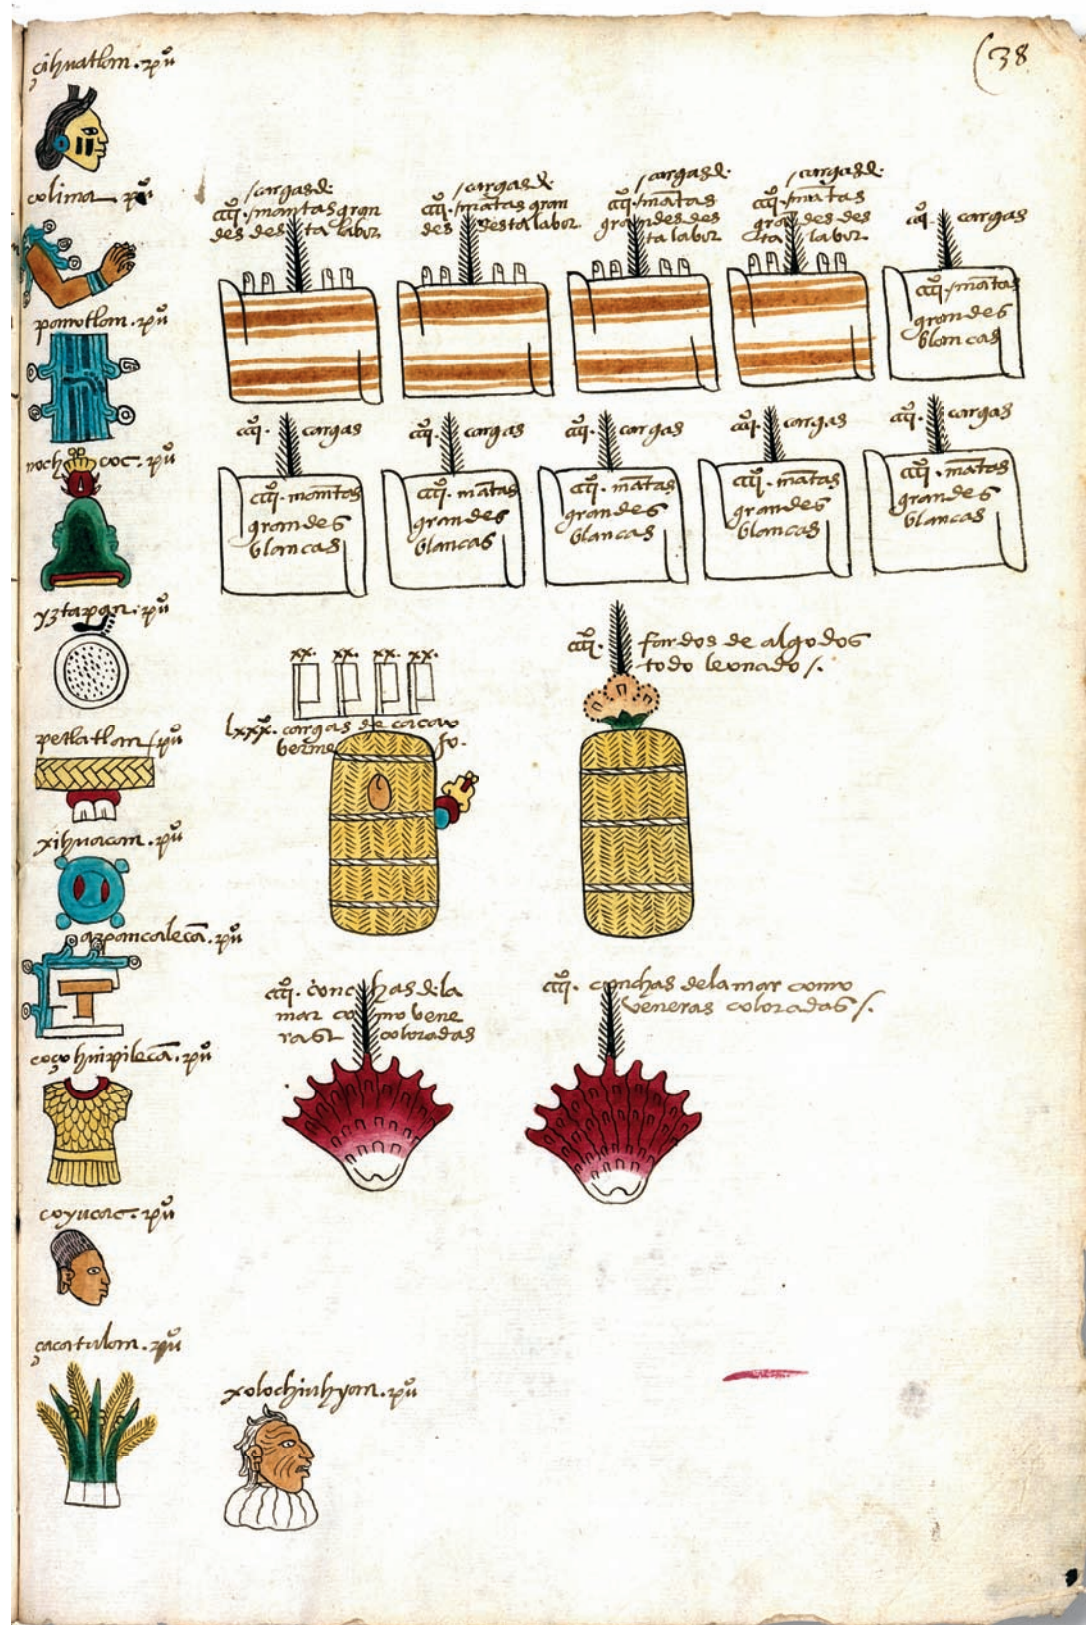 (38
çihuatlan. puº
colima. puº
panotlan. puº
nochcoc. puº
yztapan. puº
petlatlan. puº
xihuacan. puº
apancalecā. puº
coçohuipilecā. puº
coyucac. puº
çacatulan. puº
xolochiuhyan. puº
/cargas de
cccc. /mantas gran
des desta labor
/cargas de
cccc. /mātas gran
des desta labor
/cargas de
cccc. /mātas
grandes des
ta labor
/cargas de
cccc. /mātas
grandes des
ta labor
cccc. cargas
cccc. /mātas
grandes
blancas
cccc. cargas
cccc. mantas
grandes
blancas
cccc. cargas
cccc. mātas
grandes
blancas
cccc. cargas
cccc. mātas
grandes
blancas
cccc. cargas
cccc. mātas
grandes
blancas
cccc. cargas
cccc. mātas
grandes
blancas
xx. xx. xx. xx.
lxxx. cargas de cacao
bermejo.
cccc. fardos de algodon
todo leonado /.
cccc. conchas de la
mar como vene
ras coloradas
cccc. conchas dela mar como
veneras coloradas /.